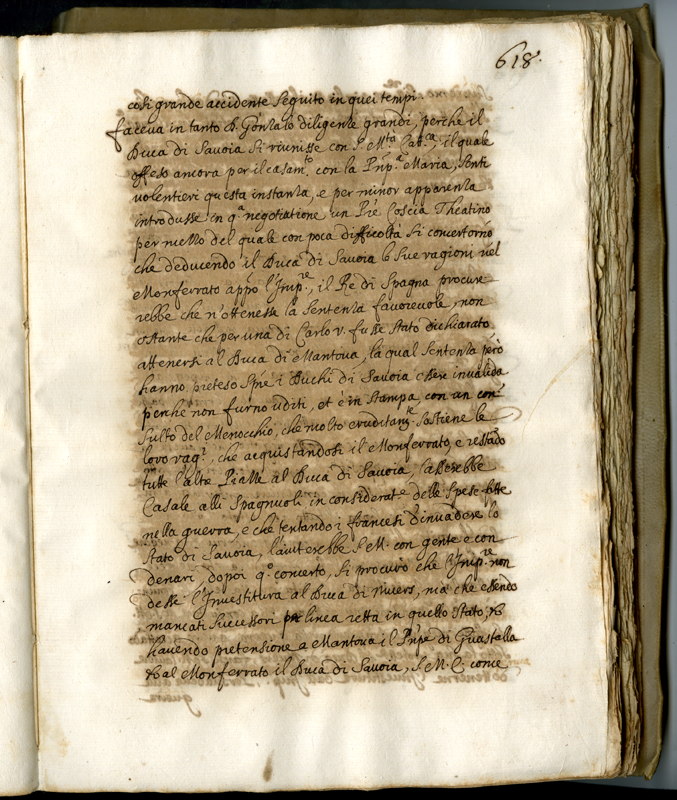 618.
così grande accidente seguito in quei tempi.
faceva in tanto D. Gonzalo diligenze grandi, perche il
Duca di Savoia si riunisse con S. M.ta Cat.ca, il quale
offeso ancora per il casam.to con la Prıp.a Maria, sentì
volentieri questa instanza, e per minor apparenza
introdusse in q.a negotiatione un Pře Coscia Theatino
per mezzo del quale con poca difficoltà si concertorno
che deducendo il Duca di Savoia le sue ragioni nel
Monferrato appo l'Imp.re, il Re di Spagna procure
rebbe che n'ottenesse la sentenza favorevole, non
ostante che per una di Carlo v. fusse stato dichiarato
attenersi al Duca di Mantova, la qual sentenza però
hanno preteso spre i Duchi di Savoia essere invalida
perche non furno uditi, et è in stampa con un con
sulto del Menocchio, che molto eruditam.te sostiene le
loro rag.ni, che acquistandosi il Monferrato, e restādo
tutte l'altre Piazze al Duca di Savoia, lasserebbe
Casale alli Spagnuoli in considerat.e delle spese fatte
nella guerra, e che tentando i francesi d'invadere lo
stato di Savoia, l'aiuterebbe S. M. con gente e con
denari, dopoi q.o concerto, si procurò che l'Imp.re non
desse l'Investitura al Duca di Nivers, mà che essendo
mancati successori per linea retta in quello stato, &
havendo pretensione a Mantova il Prıpe di Guastalla
& al Monferrato il Duca di Savoia, S. M. C. come